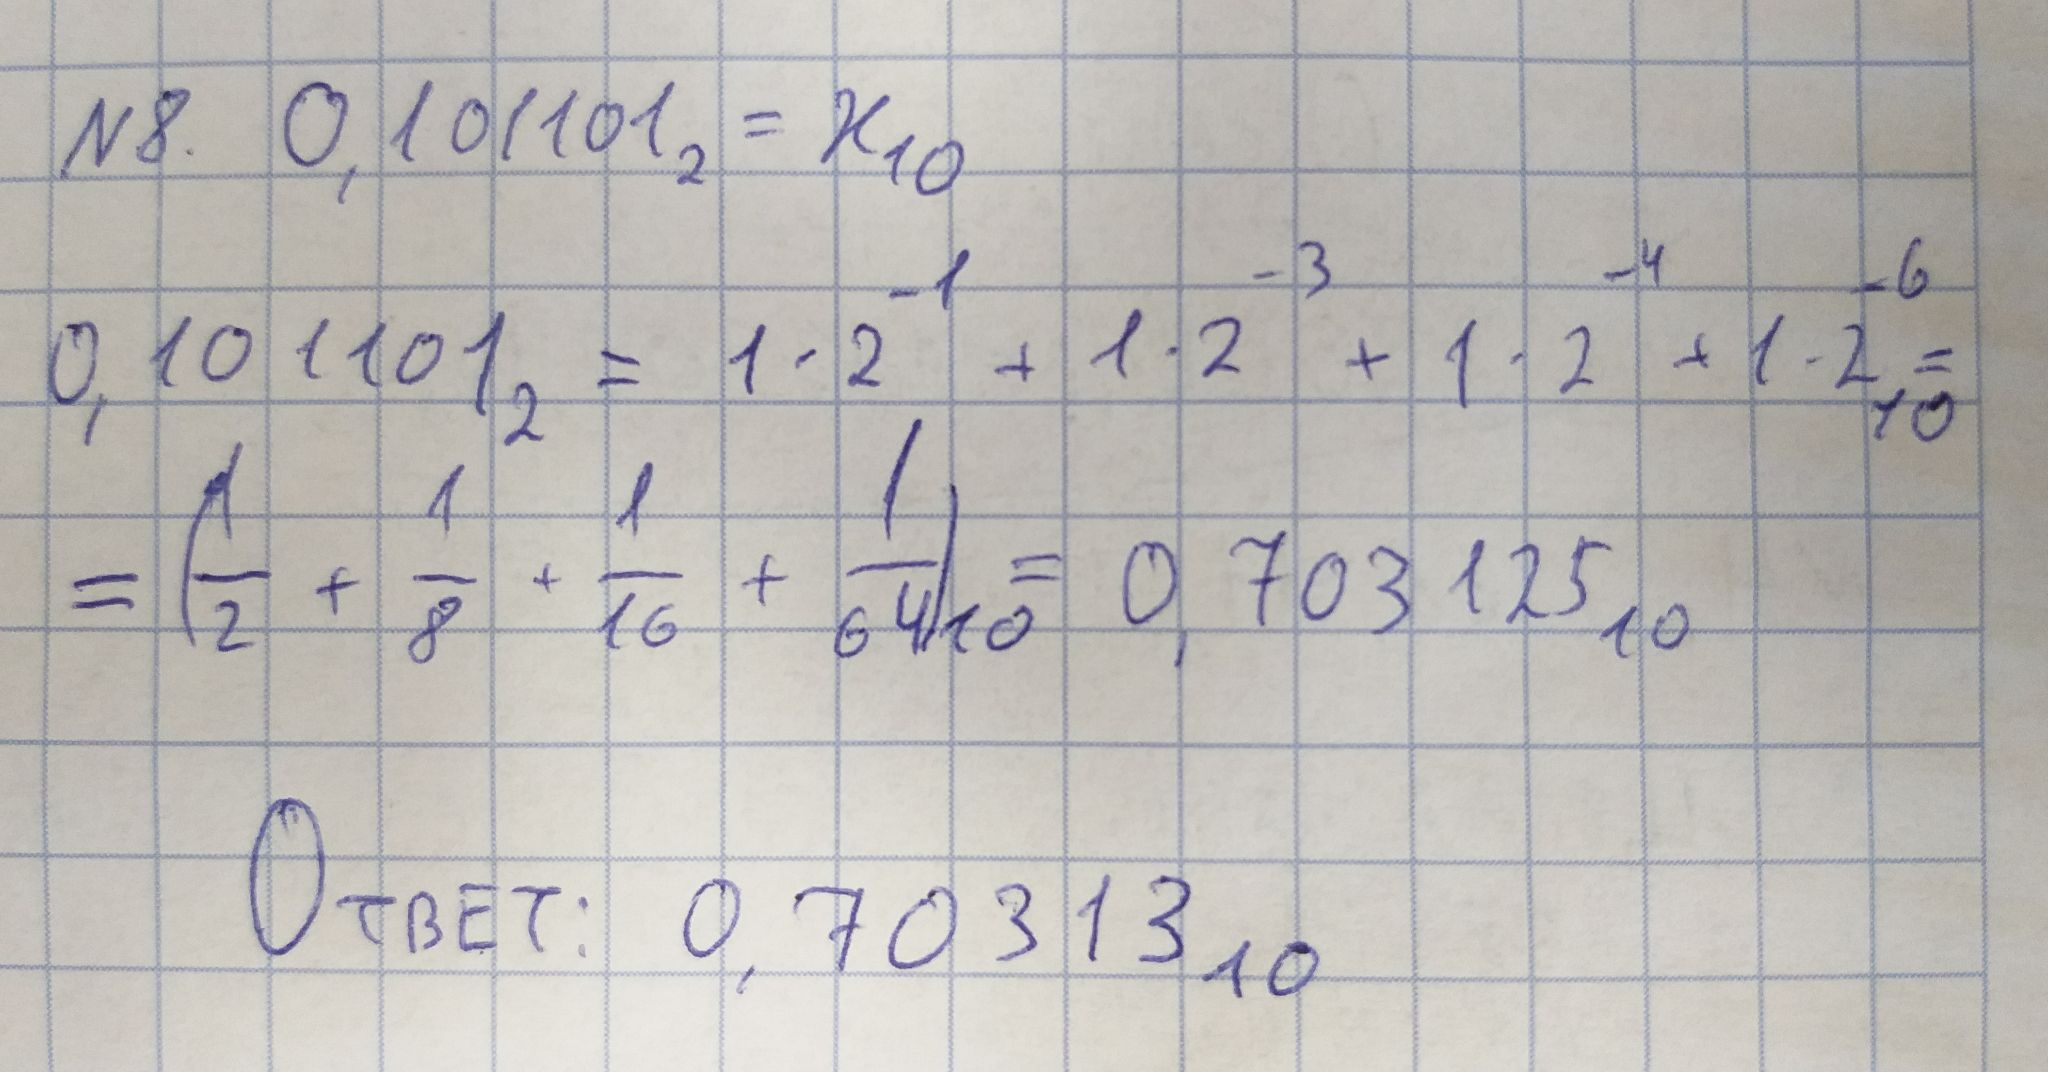 N8. 0,101101₂ = x₁₀
0,101101₂ = 1·2⁻¹ + 1·2⁻³ + 1·2⁻⁴ + 1·2⁻⁶₁₀ =
= (1/2 + 1/8 + 1/16 + 1/64)₁₀ = 0,703125₁₀
Ответ: 0,70313₁₀